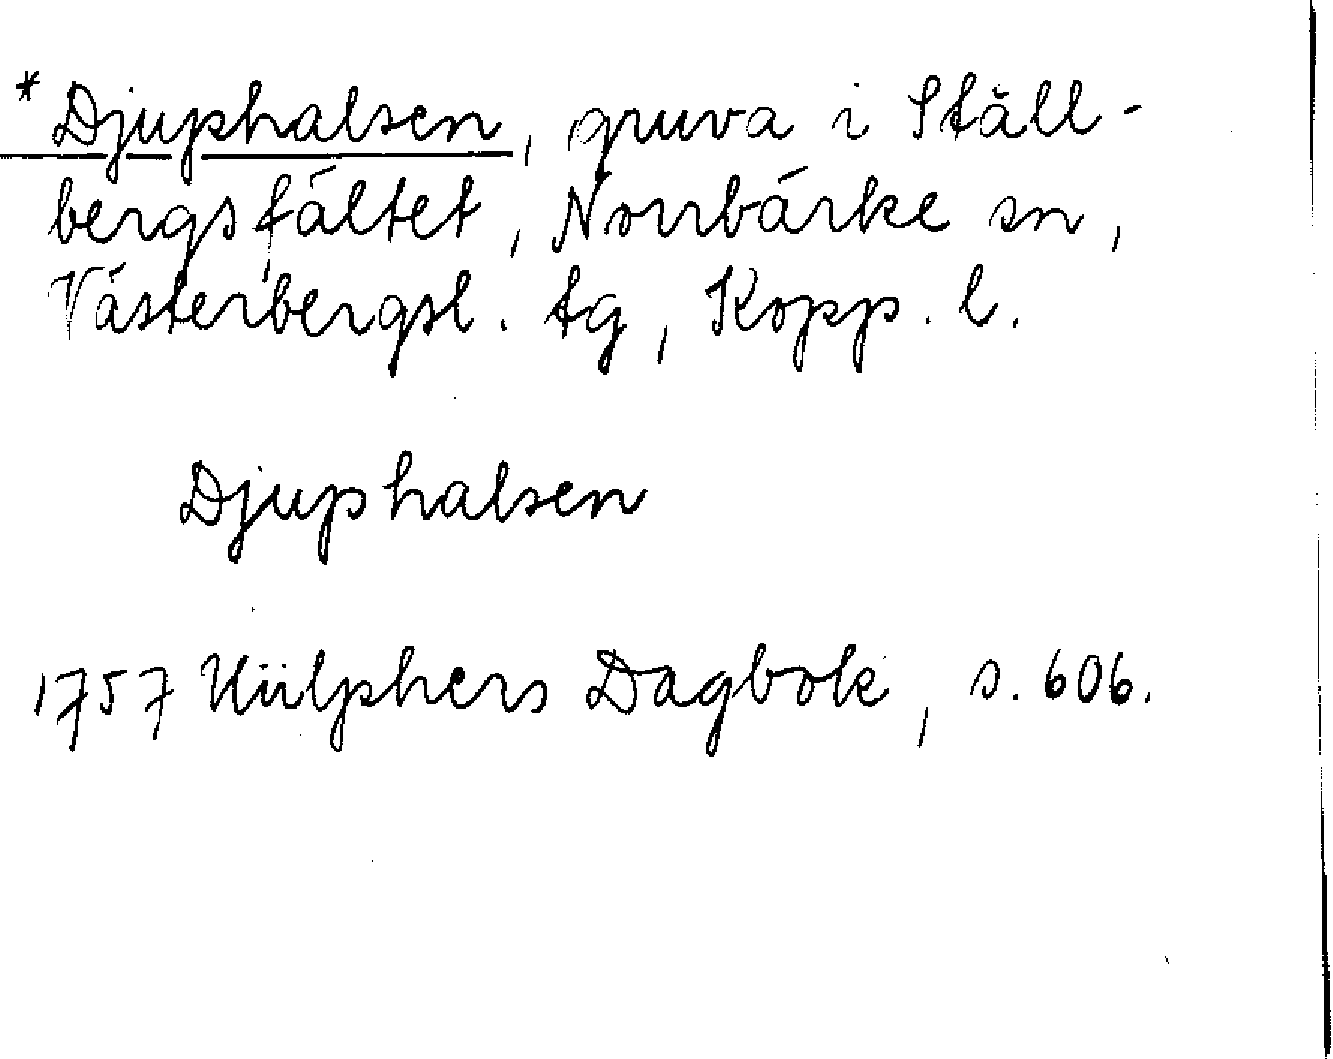 * Djuphalsen, gruva i Ställ-
bergsfältet, Norrbärke sn,
Västerbergsl. tg, Kopp. l.
Djuphalsen
1757 Hülphers Dagbok, s. 606.